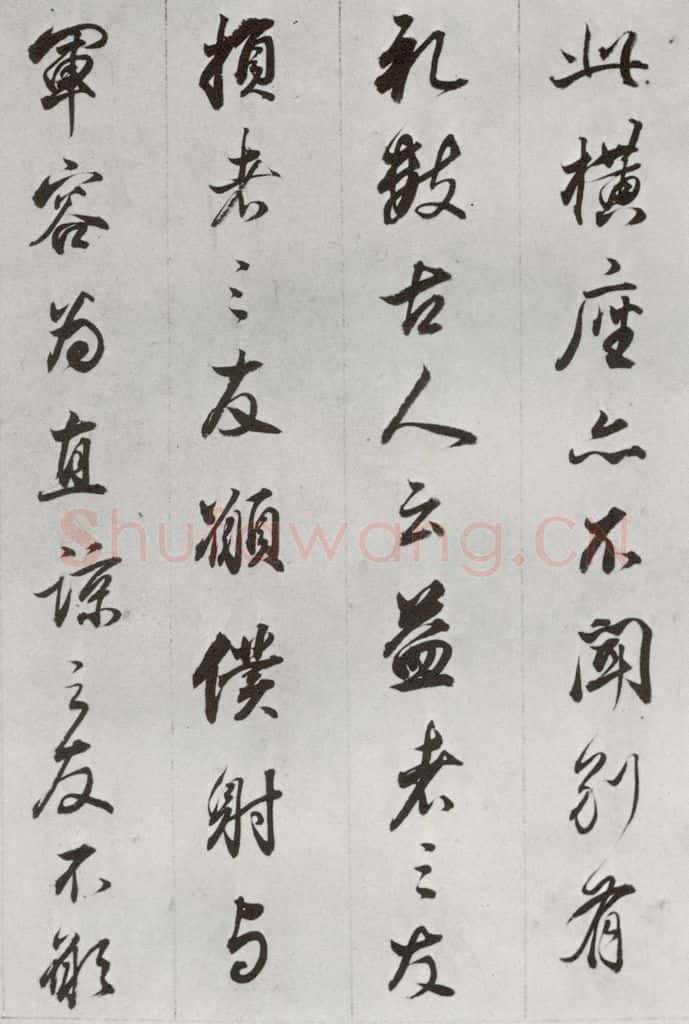 此橫座亦不聞別有
礼數古人云益者三友
損者三友願僕射与
軍容為直諒之友不願
Shufawang.CN